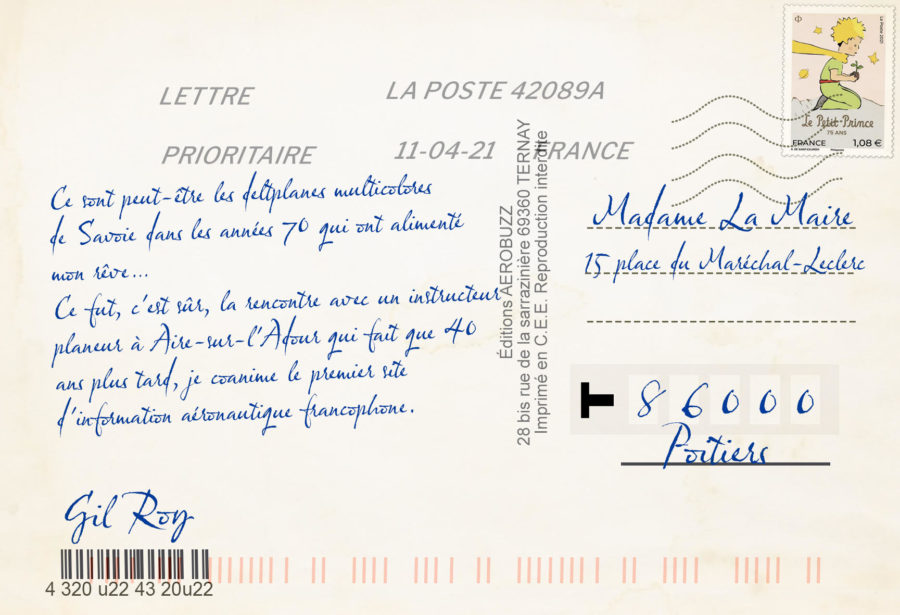 LETTRE
PRIORITAIRE
LA POSTE 42089A
11-04-21 FRANCE
Le Petit Prince
75 ANS
FRANCE 1,08 €
La Poste 2021
Ce sont peut-être les deltplanes multicolores
de Savoie dans les années 70 qui ont alimenté
mon rêve...
Ce fut, c'est sûr, la rencontre avec un instructeur
planeur à Aire-sur-l'Adour qui fait que 40
ans plus tard, je coanime le premier site
d'information aéronautique francophone.
Gil Roy
4 320 u22 43 20u22
Éditions AEROBUZZ
28 bis rue de la sarrazinière 69360 TERNAY
Imprimé en C.E.E. Reproduction interdite
Madame La Maire
15 place du Maréchal-Leclerc
T 86000
Poitiers